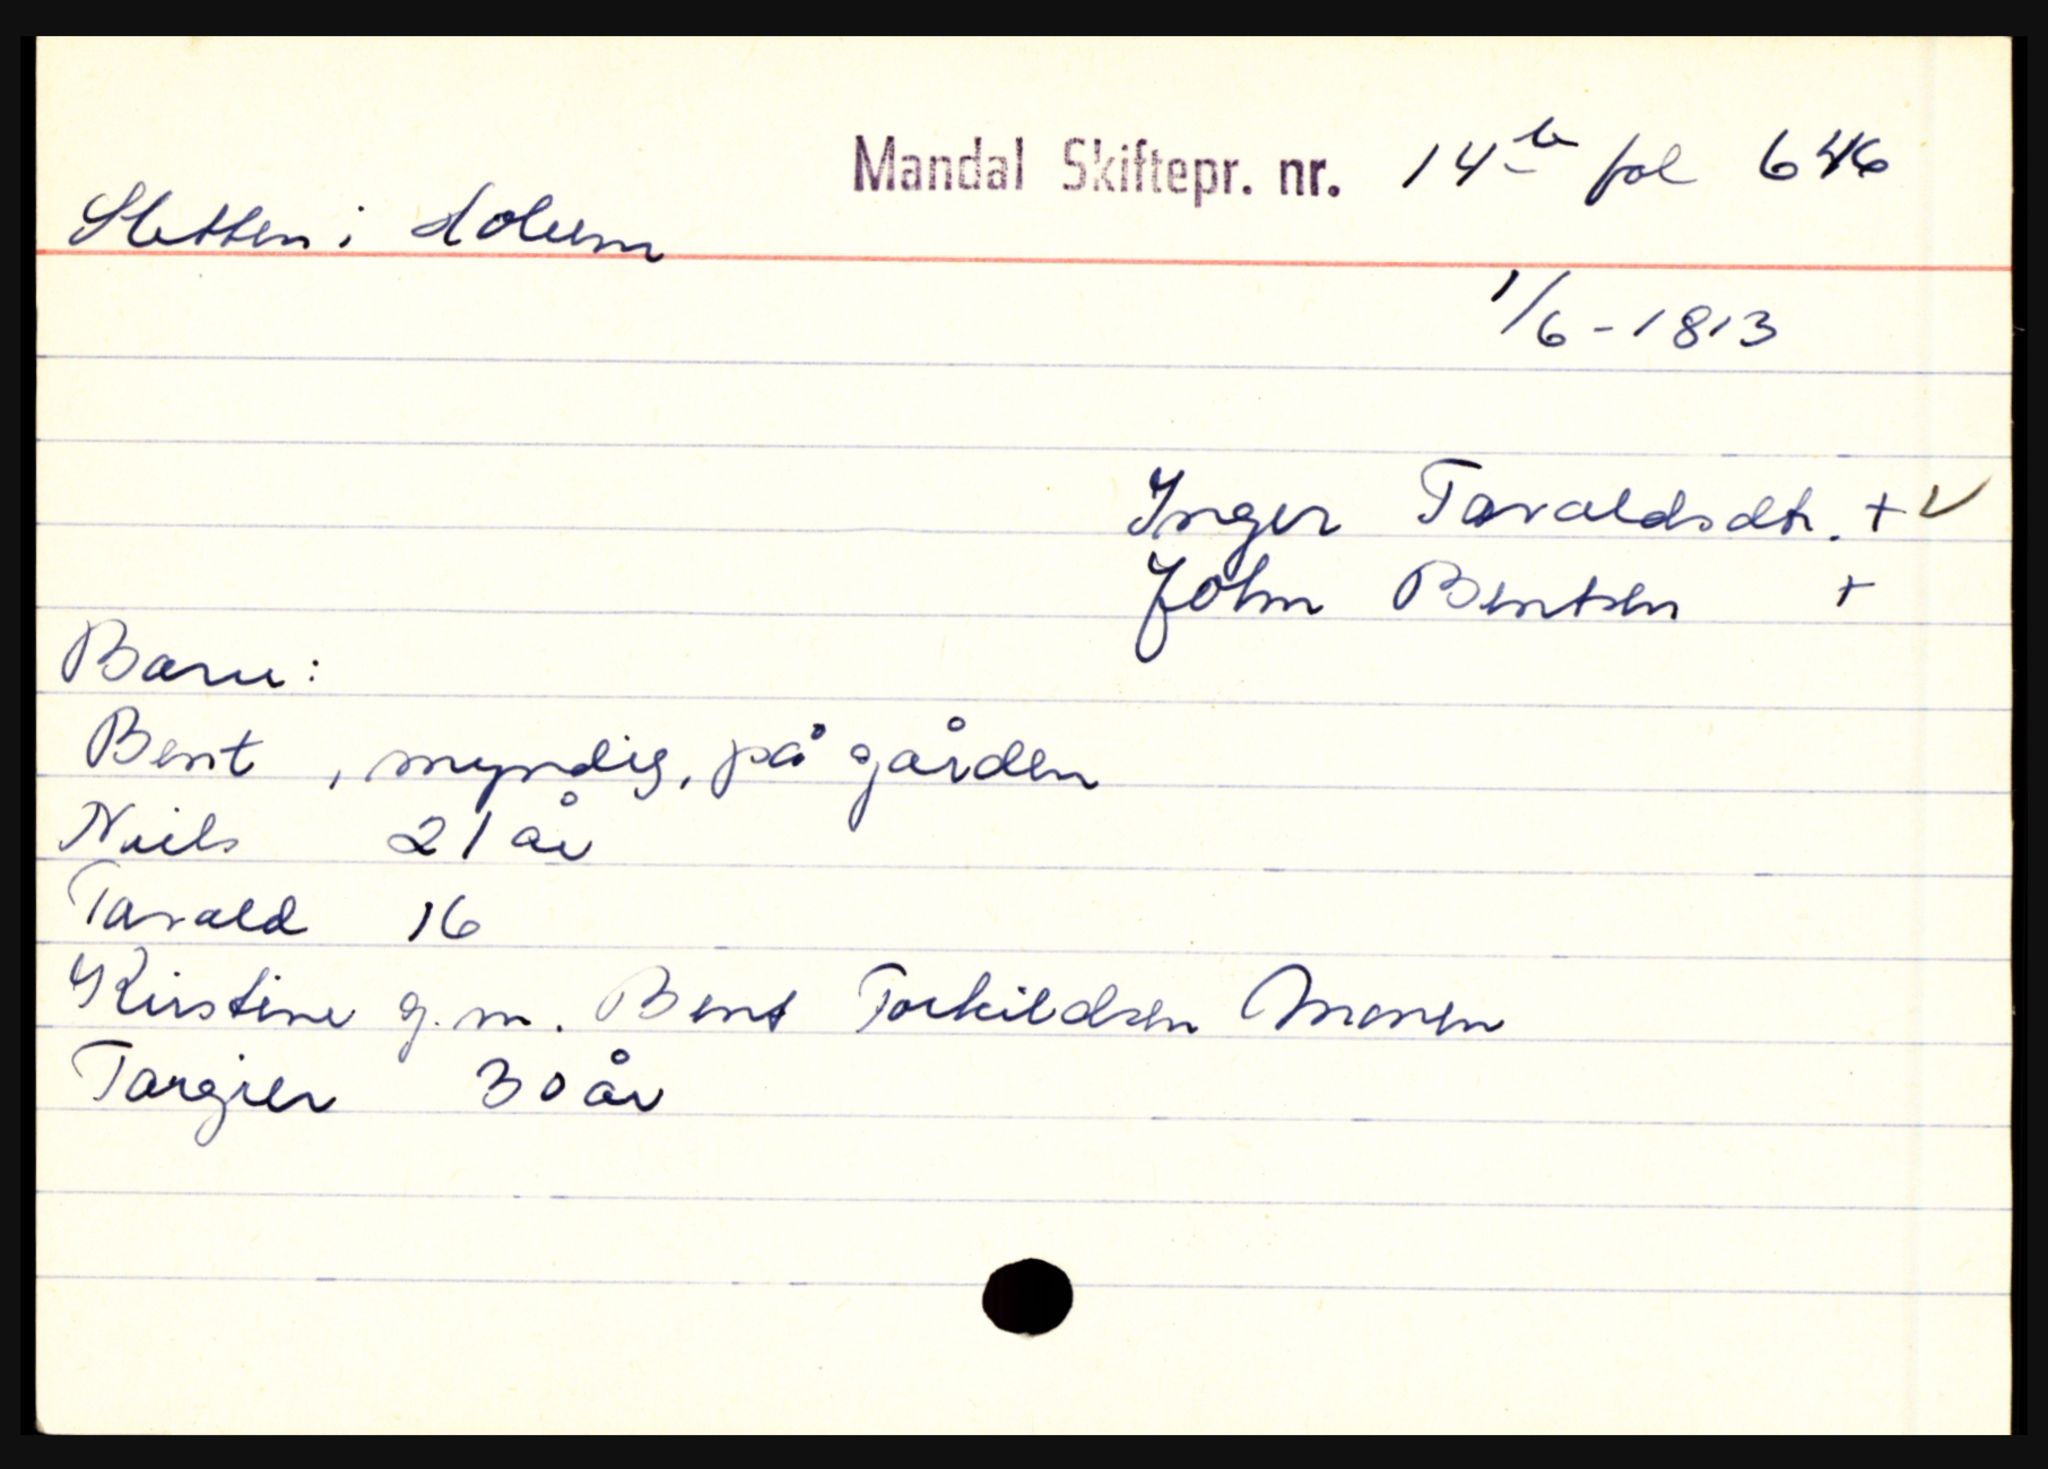 Mandal Skiftepr. nr. 14b fol 646
Sletten i Holum
1/6-1813
Inger Tavaldsdtr. + V
John Bentsen +
Barn:
Bent , myndig, på gården
Niels 21 år
Tavald 16
Kirstine g.m. Bent Torkildsen Monen
Targier 30 år